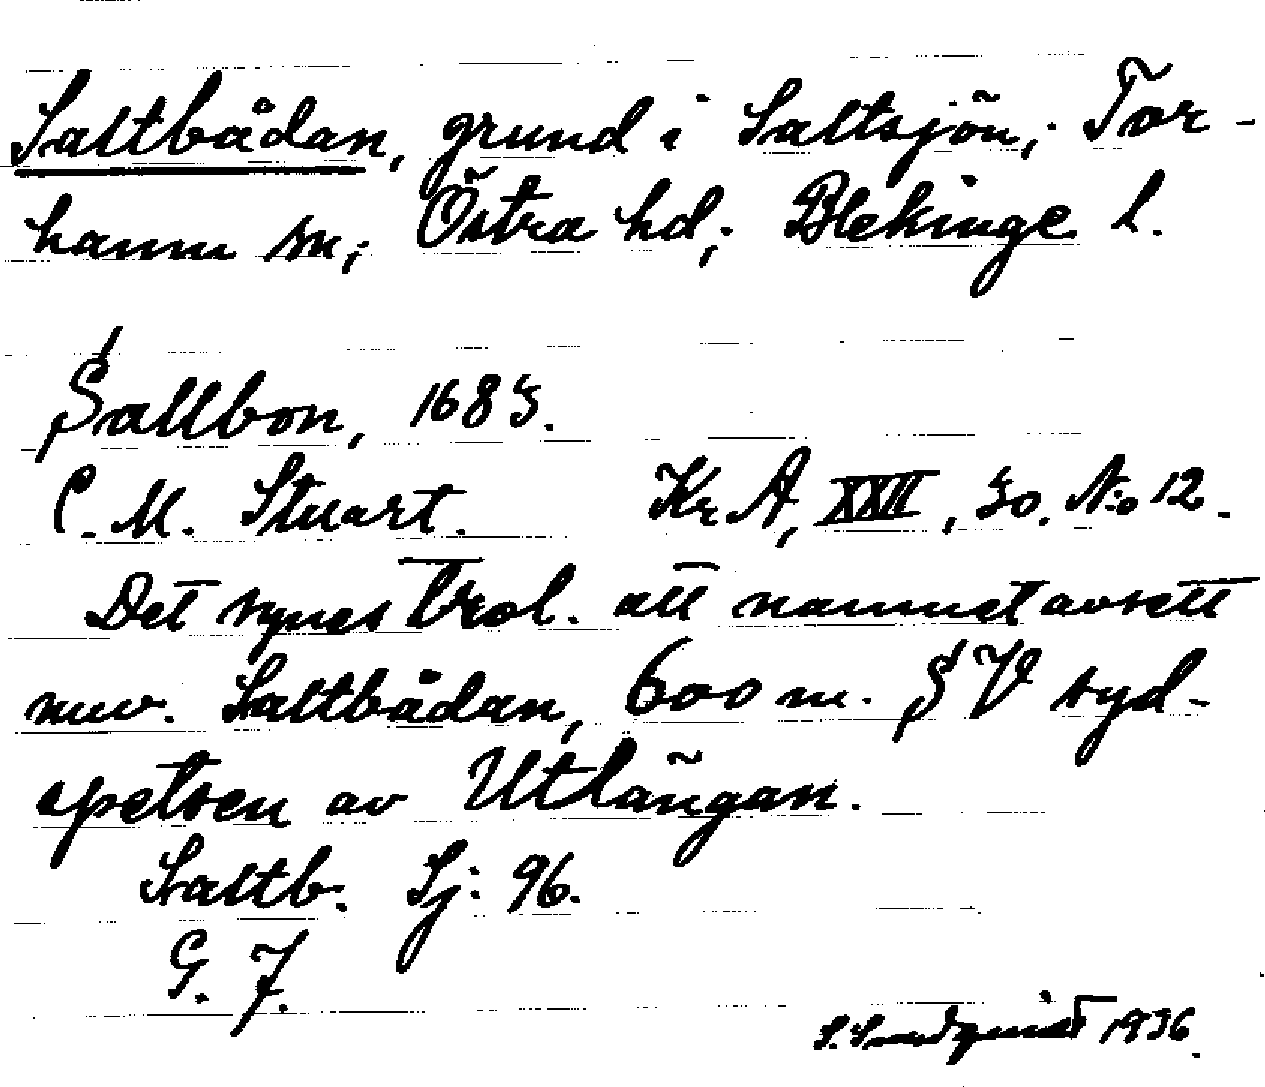 Saltbådan, grund i Saltsjön; Tor-
hamn sn; Östra hd; Blekinge l.
Sallbon, 1683.
C. M. Stuart. Kr A, XXII, 30. No 12.
Det synes trol. att namnet avsett
nuv. Saltbådan, 600 m. S V syd-
spetsen av Utlängan.
Saltb. Sj: 96.
G. J.
S. Sundquist 1936.